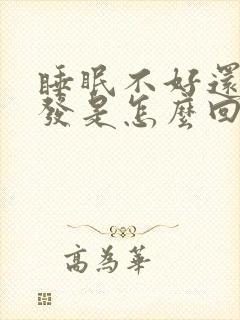 睡眠不好還
發是怎麼回
高為華